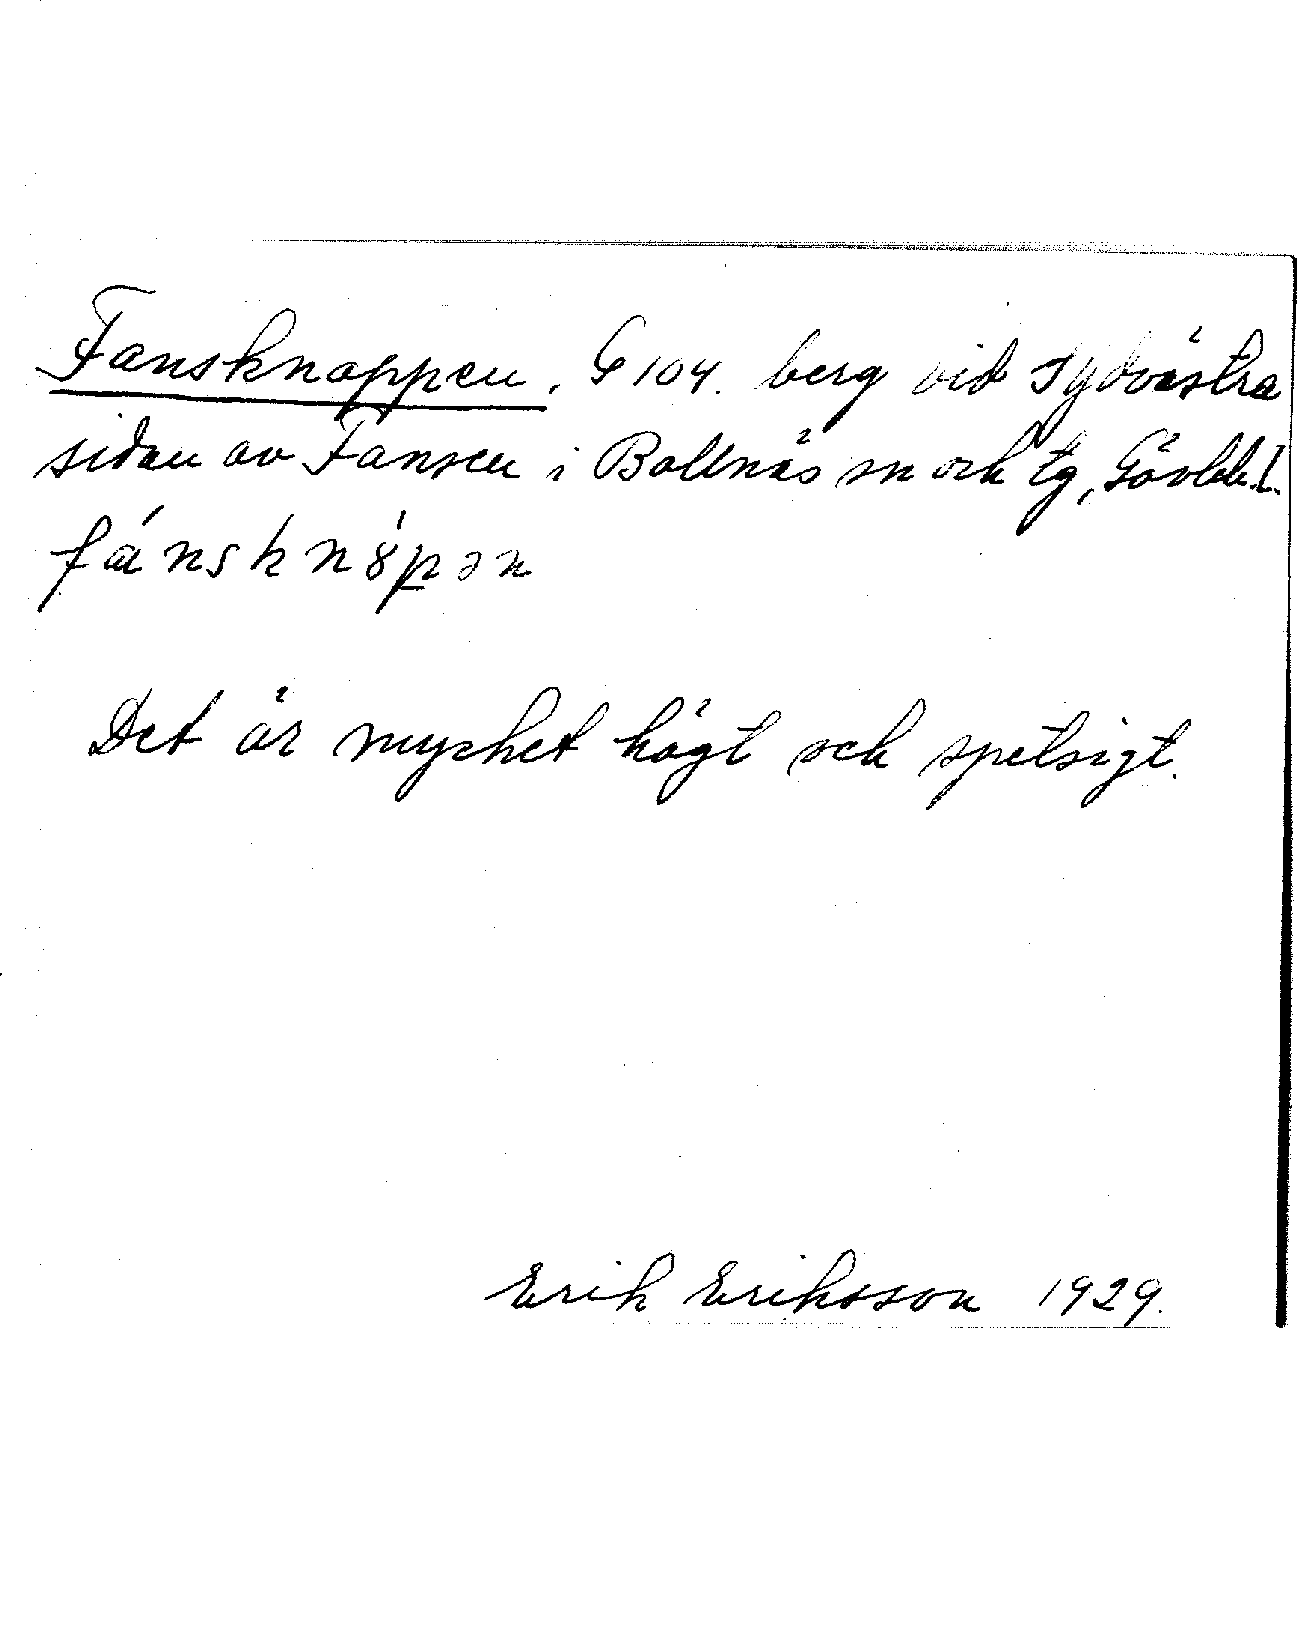 Fansknappen, G 104. berg vid sydvästra
sidan av Fansen i Bollnäs sn och tg, Gävleb.l.
fánsknȣ́pən
Det är mycket högt och spetsigt.
Erik Eriksson 1929.